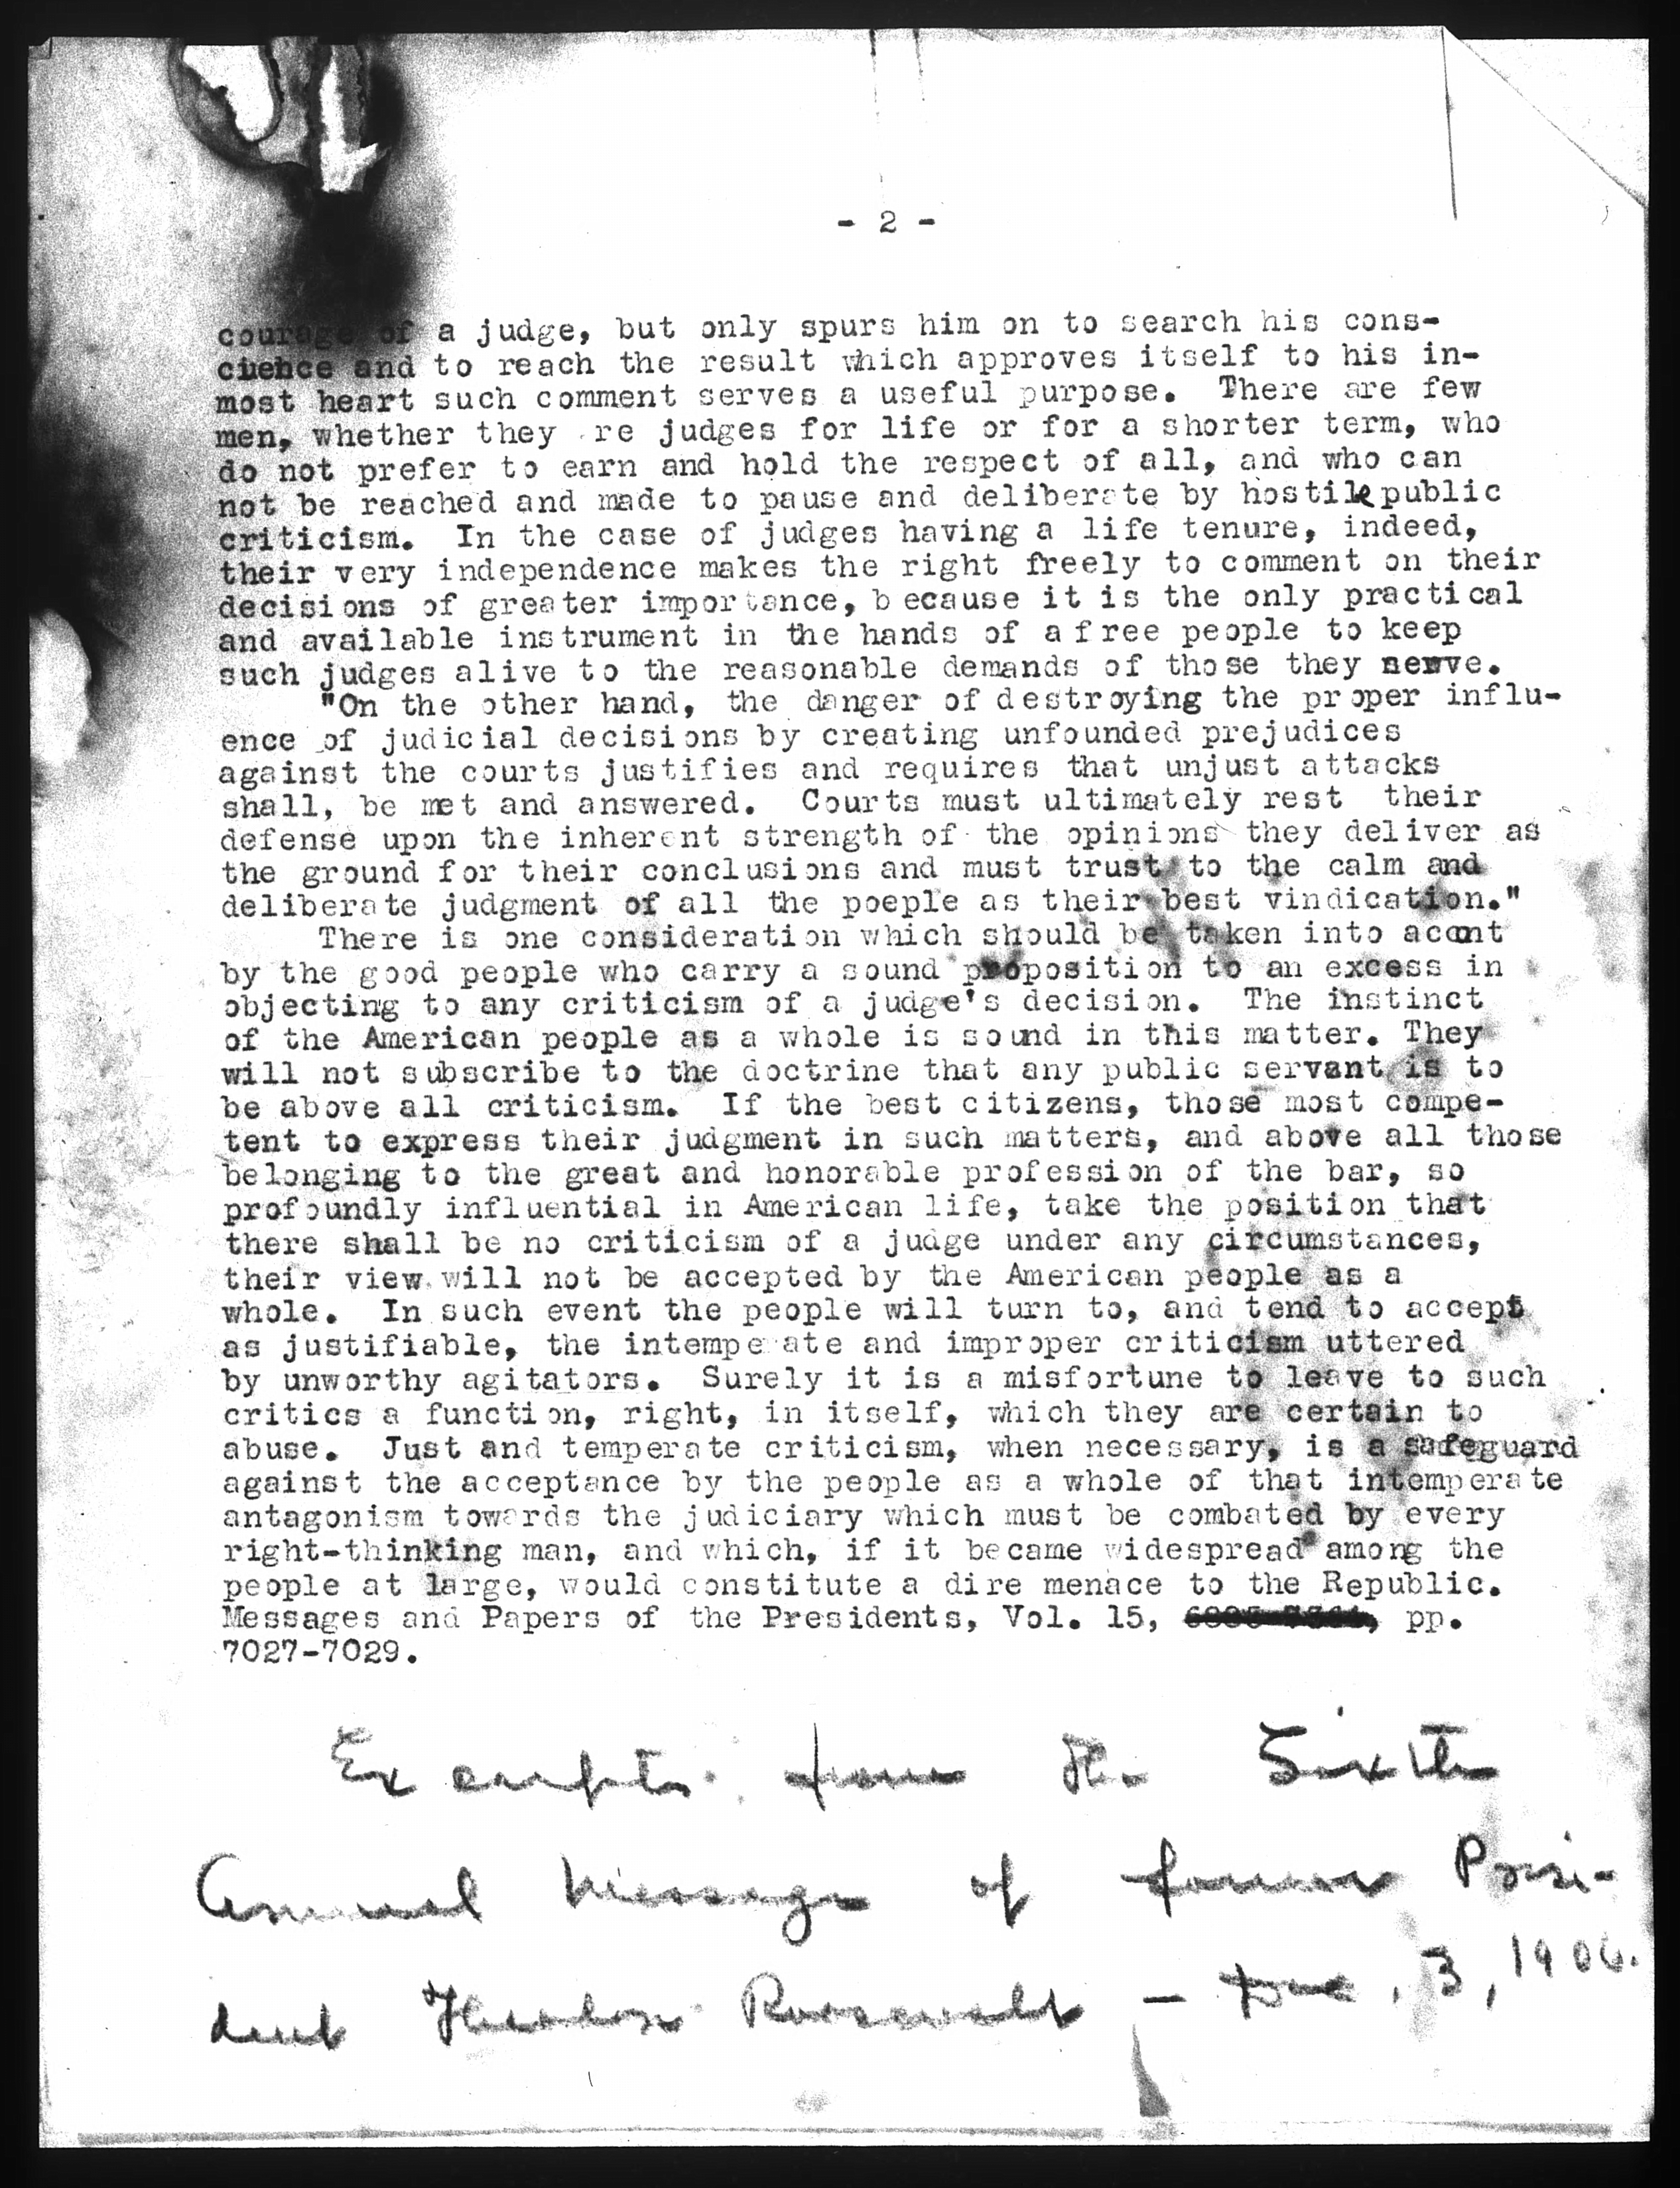 - 2 -
courage of a judge, but only spurs him on to search his cons-
cience and to reach the result which approves itself to his in-
most heart such comment serves a useful purpose. There are few
men, whether they re judges for life or for a shorter term, who
do not prefer to earn and hold the respect of all, and who can
not be reached and made to pause and deliberate by hostile public
criticism. In the case of judges having a life tenure, indeed,
their very independence makes the right freely to comment on their
decisions of greater importance, b ecause it is the only practical
and available instrument in the hands of a free people to keep
such judges alive to the reasonable demands of those they serve.
"On the other hand, the danger of destroying the proper influ-
ence of judicial decisions by creating unfounded prejudices
against the courts justifies and requires that unjust attacks
shall, be met and answered. Courts must ultimately rest their
defense upon the inherent strength of the opinions they deliver as
the ground for their conclusions and must trust to the calm and
deliberate judgment of all the poeple as their best vindication."
There is one consideration which should be taken into acont
by the good people who carry a sound proposition to an excess in
objecting to any criticism of a judge's decision. The instinct
of the American people as a whole is sound in this matter. They
will not subscribe to the doctrine that any public servant is to
be above all criticism. If the best citizens, those most compe-
tent to express their judgment in such matters, and above all those
belonging to the great and honorable profession of the bar, so
profoundly influential in American life, take the position that
there shall be no criticism of a judge under any circumstances,
their view will not be accepted by the American people as a
whole. In such event the people will turn to, and tend to accept
as justifiable, the intempe ate and improper criticism uttered
by unworthy agitators. Surely it is a misfortune to leave to such
critics a function, right, in itself, which they are certain to
abuse. Just and temperate criticism, when necessary, is a safeguard
against the acceptance by the people as a whole of that intemperate
antagonism towards the judiciary which must be combated by every
right-thinking man, and which, if it became widespread among the
people at large, would constitute a dire menace to the Republic.
Messages and Papers of the Presidents, Vol. 15, pp.
7027-7029.
Excerpts from the Sixth
Annual Message of former Presi-
dent Theodore Roosevelt - Dec. 3, 1906.